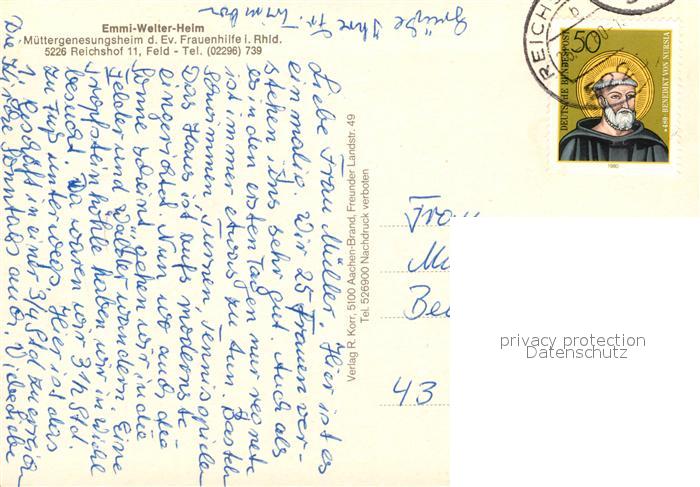 Emmi-Welter-Heim
Müttergenesungsheim d. Ev. Frauenhilfe i. Rhld.
5226 Reichshof 11, Feld - Tel. (02296) 739
Liebe Frau Müller. Hier ist es
einmalig. Wir 25 Frauen ver-
stehen uns sehr gut. Auch als
es in den ersten Tagen nur regnete
ist immer etwas zu tun. Basteln
schwimmen, Turnen, Tennisspielen
Das Haus ist aufs modernste
eingerichtet. Nun wo auch die
Sonne scheint gehen wir in die
Felder und Wälder wandern. Eine
Tropfsteinhöhle haben wir in Wiehl
besucht. Da waren wir 3 1/2 Std
zu Fuß unterwegs. Hier ist das
1. Geschäft in einer 3/4 Std zu erreichen
Die Kirche Sonntags auch. Viele liebe
Grüße Ihre Fr.
Verlag R. Korr, 5100 Aachen-Brand, Freunder Landstr. 49
Tel. 526900 Nachdruck verboten
REICHS
b
DEUTSCHE BUNDESPOST
50
*480 BENEDIKT VON NURSIA
1980
Frau
Mü
Be
43
privacy protection
Datenschutz